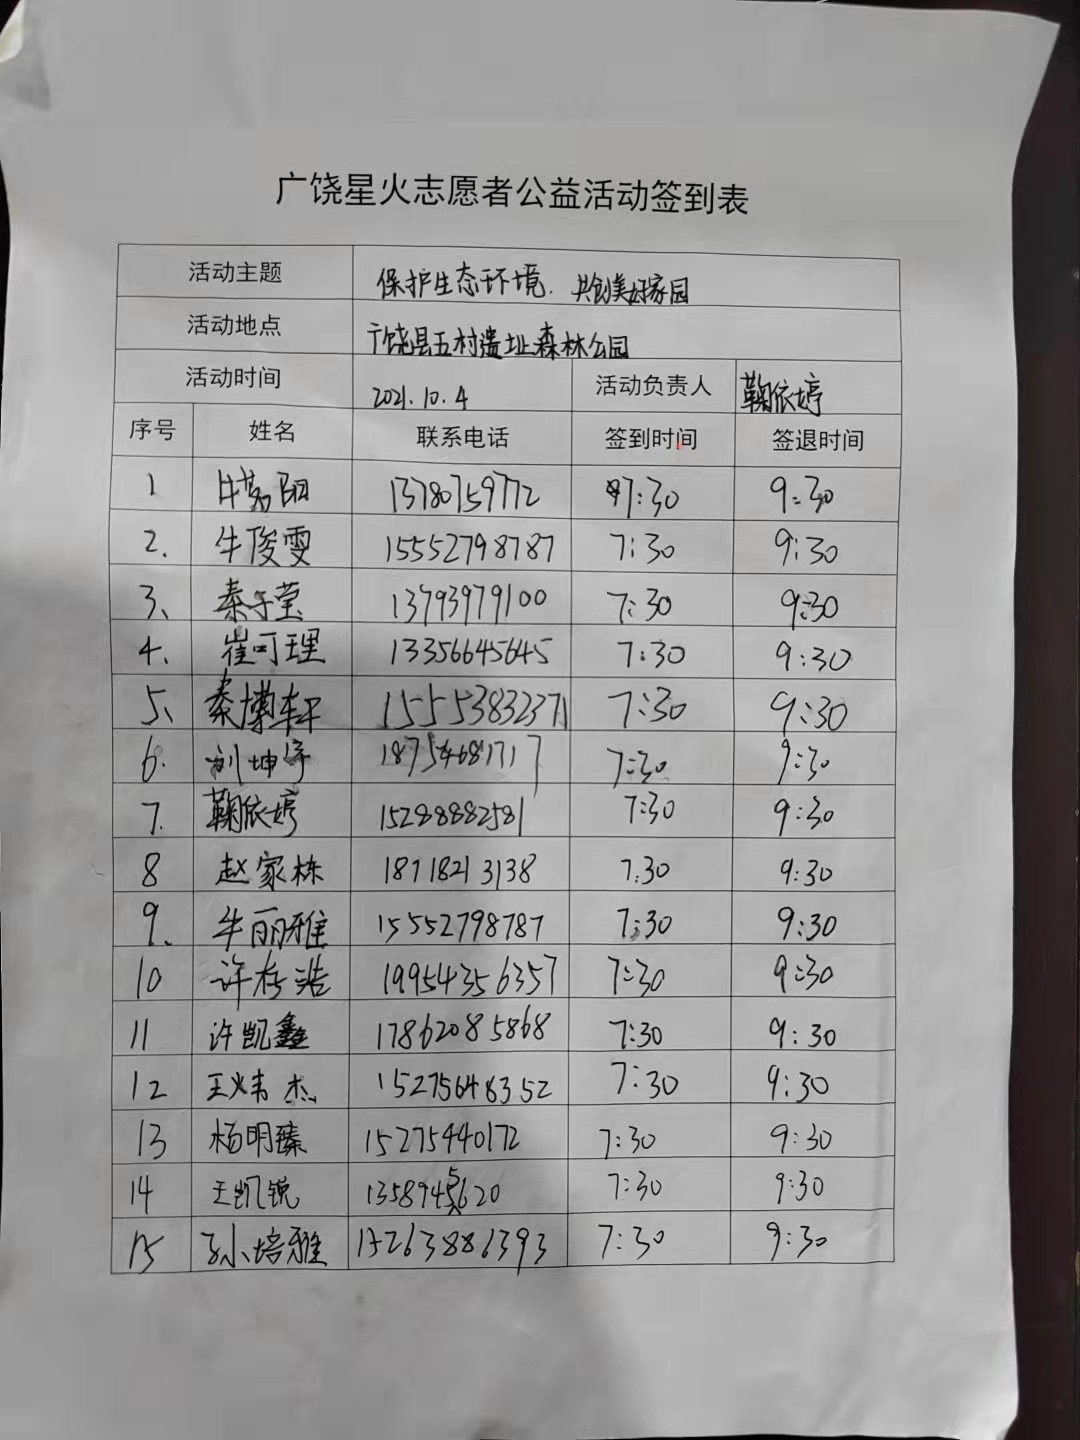 广饶星火志愿者公益活动签到表
活动主题 保护生态环境. 共创美好家园
活动地点 广饶县五村遗址森林公园
活动时间 2021.10.4 活动负责人 鞠依婷
序号 姓名 联系电话 签到时间 签退时间
1 13780759772 7:30 9:30
2. 牛俊雯 15552798787 7:30 9:30
3、 秦子莹 13793979100 7:30 9:30
4、 崔可理 13356645645 7:30 9:30
5、 秦博轩 15553832371 7:30 9:30
6. 刘坤 18754681717 7:30 9:30
7. 鞠依婷 15288882581 7:30 9:30
8 赵家栋 18718213138 7.30 9:30
9. 牛丽雅 15552798787 7:30 9:30
10 许存浩 19954356357 7:30 9:30
11 许凯鑫 17862085868 7:30 9:30
12 王炜杰 15275648352 7:30 9:30
13 杨明臻 15275440172 7:30 9:30
14 王凯锐 7:30 9:30
15 孙培雅 15263886393 7:30 9:30